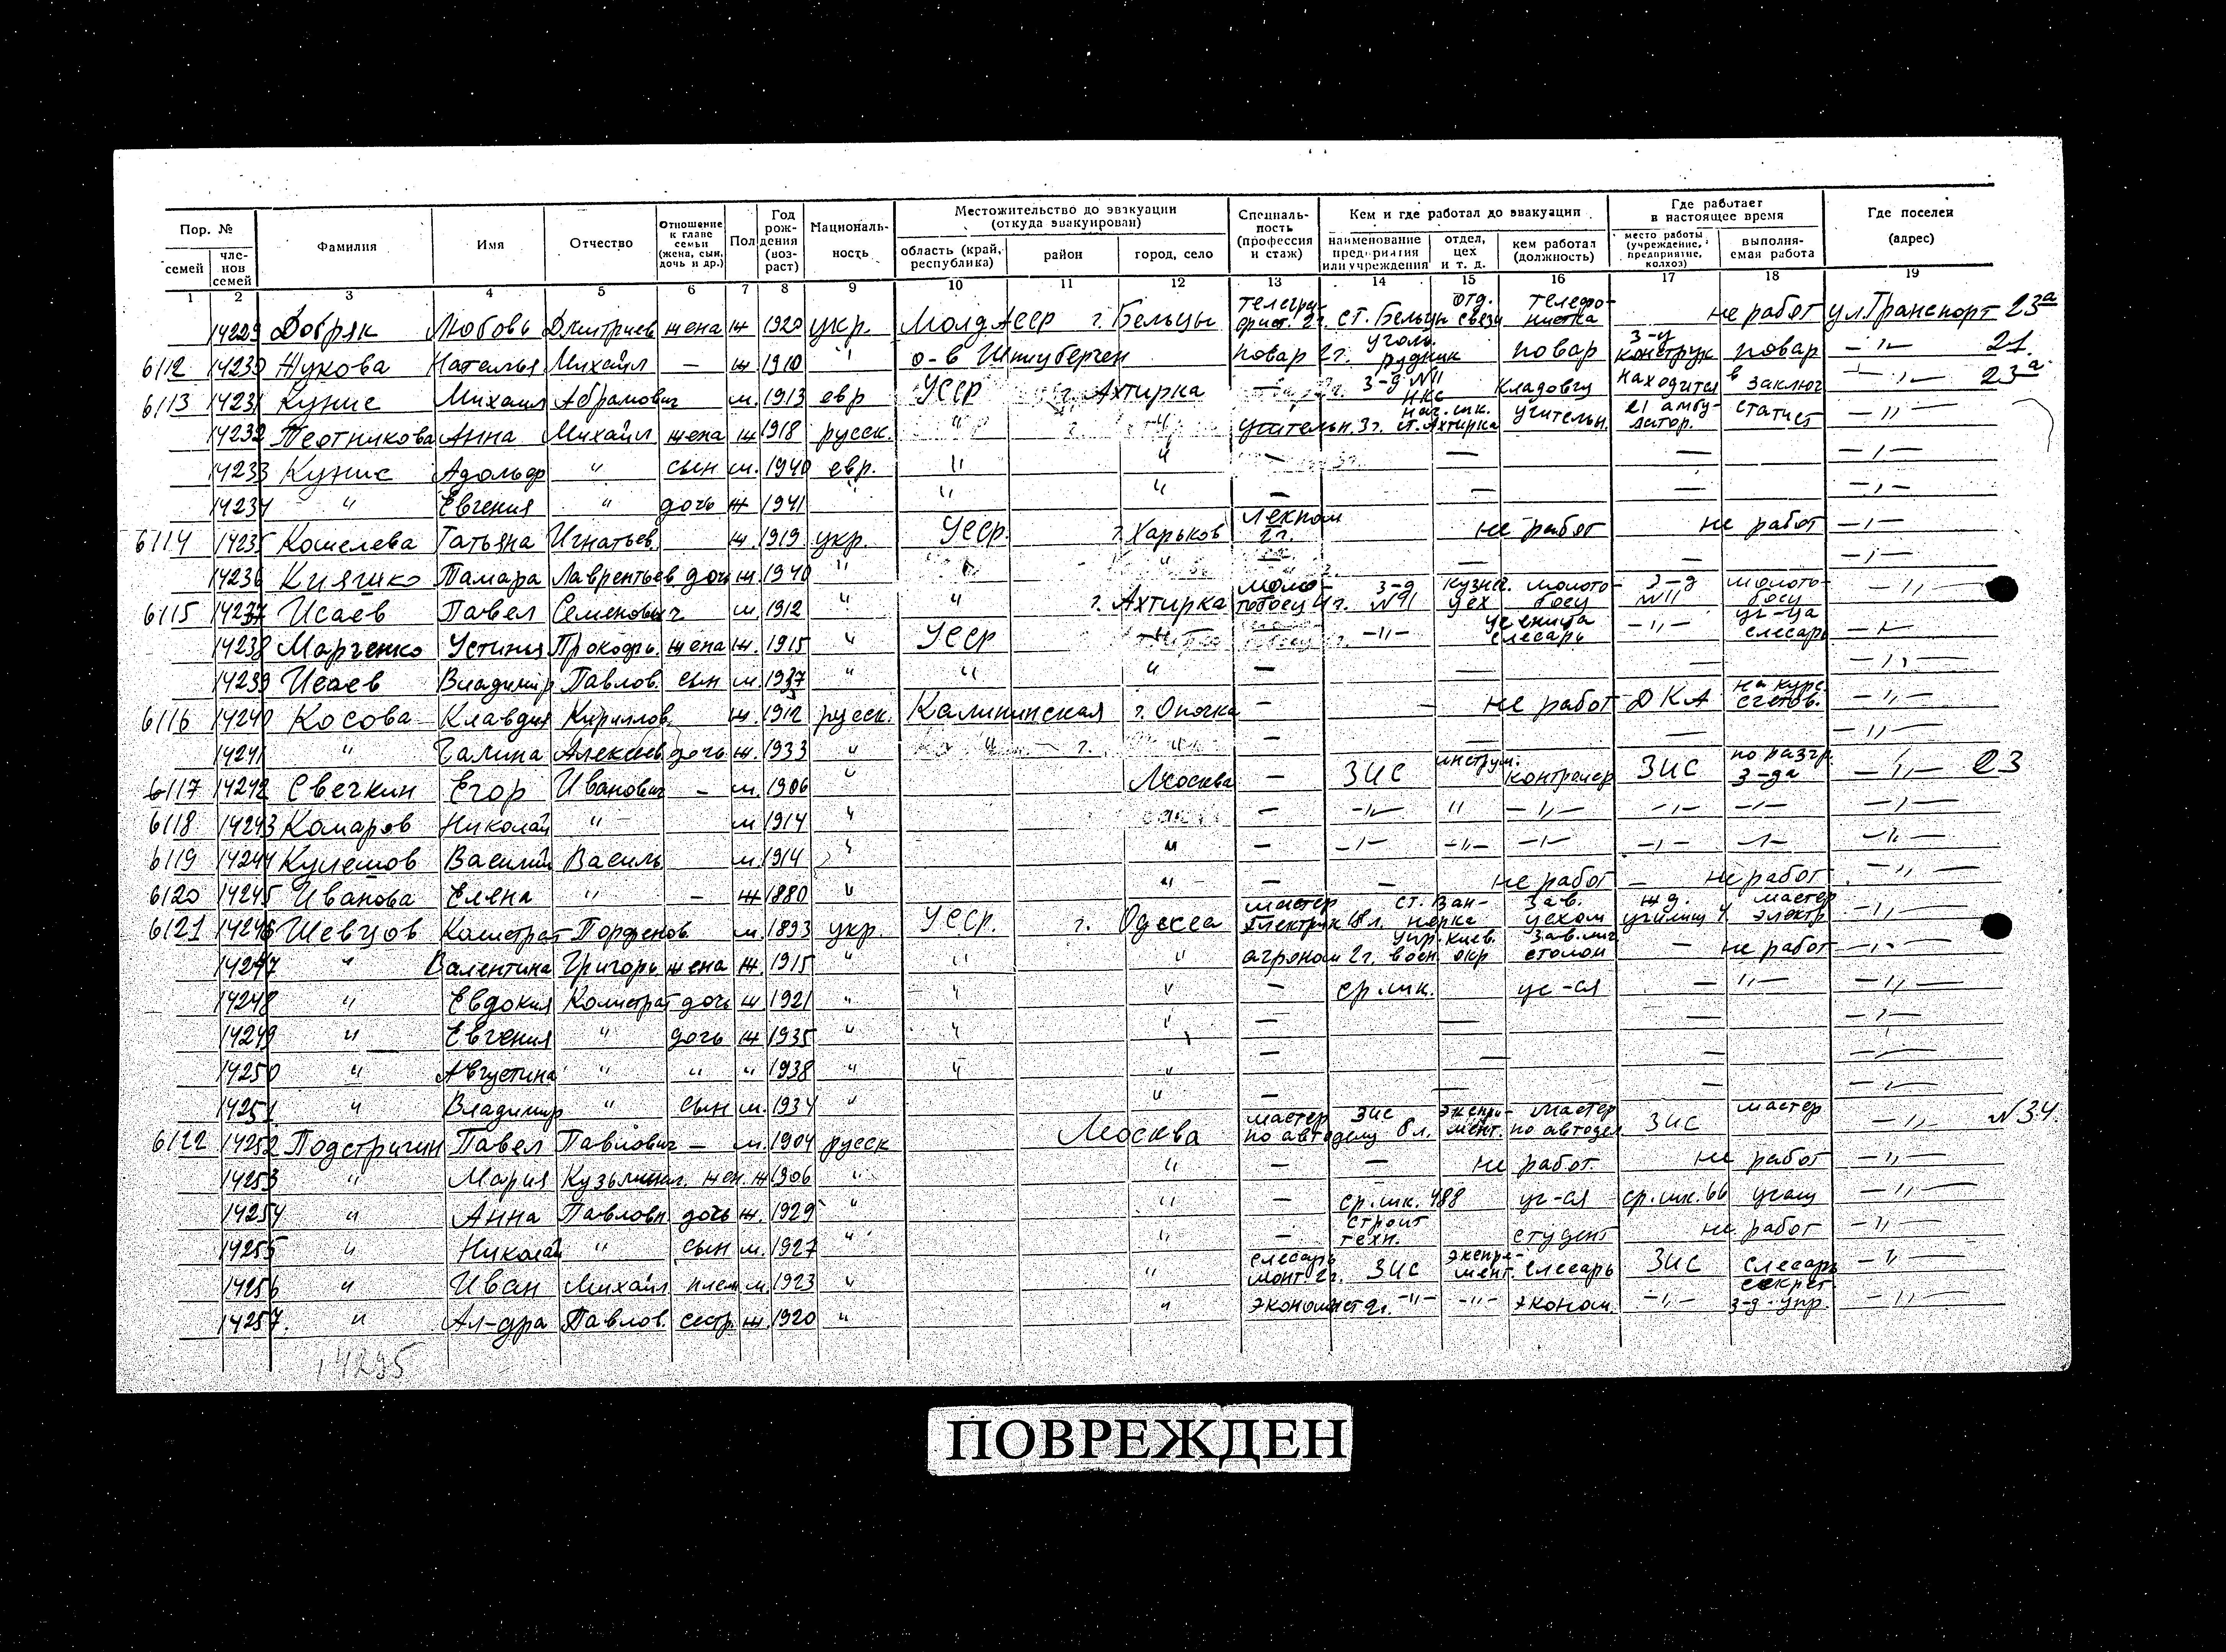 Пор. № Фамилия Имя Отчество Отношение к главе семьи (жена, сын, дочь и др.) Пол Год рождения (возраст) Националь-ность Местожительство до эвакуации (откуда эвакуирован) Специаль-ность (профессия и стаж) Кем и где работал до эвакуации Где работает в настоящее время Где поселен (адрес)
семей чле-нов семей область (край, республика) район город, село наименование предприятия или учреждения отдел, цех и т. д. кем работал (должность) место работы (учреждение, предприятие, колхоз) выполня-емая работа
1 2 3 4 5 6 7 8 9 10 11 12 13 14 15 16 17 18 19
14229 Добряк Любовь Дмитриев жена ж 1920 укр. Молд АССР г. Бельцы телегра-фист. 2 г. ст. Бельцы отд. связи телефо-нистка не работ ул. Транспорт 23а
6112 14230 Жукова Наталья Михайл — ж 1910 " о-в Шпицберген повар 2 г. уголь. рудник повар з-д конструк повар —"— 21.
6113 14231 Кунис Михаил Абрамович м. 1913 евр УССР г. Ахтирка — з-д №11 НКС кладовщ находится в заключ —"— 23а
14232 Плотникова Анна Михайл жена ж 1918 русск. " " учительн. 3 г. нач. шк. ст. Ахтирка учительн. 21 амбу-латор. статист —"—
14233 Кунис Адольф " сын м. 1940 евр. " " — — — —"—
14234 " Евгения " дочь ж 1941 " " " — — — —"—
6114 14235 Кошелева Татьяна Игнатьев. ж. 1919 укр. УССР. г. Харьков лекпом 2 г. не работ не работ —"—
14236 Кияшко Тамара Лаврентьев дочь ж. 1940 " " " — — — —"—
6115 14237 Исаев Павел Семенович м. 1912 " " г. Ахтирка молотобоец 4 г. з-д №11 кузн. цех молото-боец з-д №11 молото-боец —"—
14238 Марченко Устинья Прокофь. жена ж. 1915 " УССР " —"— ученица слесарь —"— уч-ца слесарь —"—
14239 Исаев Владимир Павлов. сын м. 1937 " " " — — — —"—
6116 14240 Косова Клавдия Кириллов. ж. 1912 русск. Калининская г. Опочка — — не работ ДКА на курс. счетов. —"—
14241 " Галина Алексеев дочь ж. 1933 " " " — — — —"—
6117 14242 Свечкин Егор Иванович — м. 1906 " Москва — ЗИС инструм. контролер ЗИС по разгр. з-да —"— 23
6118 14243 Комаров Николай " м 1914 " — —"— " —"— —"— —"— —"—
6119 14244 Кулешов Василий Василь м. 1914 " " — —"— —"— —"— —"— —"— —"—
6120 14245 Иванова Елена " — ж 1880 " " — — не работ — не работ —"—
6121 14246 Шевцов Калистрат Порфенов. м. 1893 укр. УССР. г. Одесса мастер электрик 18 л. ст. Зав. цехом ж.д. училищ мастер электр. —"—
14247 " Валентина Григорь жена ж. 1915 " " " агроном 2 г. упр. Киев. воен окр столом — не работ —"—
14248 " Евдокия Калистрат дочь ж 1921 " " " — ср. шк. уч-ся — —"— —"—
14249 " Евгения " дочь ж 1935 " " " — — — —"—
14250 " Августина " " " 1938 " " " — — — —"—
14251 " Владимир " сын м. 1934 " " — — — —"—
6122 14252 Подстригин Павел Павлович — м. 1904 русск Москва мастер по автоделу 8 л. ЗИС экспри-мент. мастер по автодел ЗИС мастер —"— №34.
14253 " Мария Кузьминал. жен. ж 1906 " " — — не работ. не работ —"—
14254 " Анна Павловн дочь ж. 1929 " " — ср. шк. 488 уч-ся ср. шк. 66 учащ —"—
14255 " Николай " сын м. 1927 " " — строит техн. студент не работ —"—
14256 " Иван Михайл плем м. 1923 " " слесарь монт. 2 г. ЗИС экспри-мент. слесарь ЗИС слесарь —"—
14257. " Ал-дра Павлов. сестр ж. 1920 " " экономист 2 г. —"— —"— эконом. —"— секрет з-д-упр. —"—
14295
ПОВРЕЖДЕН